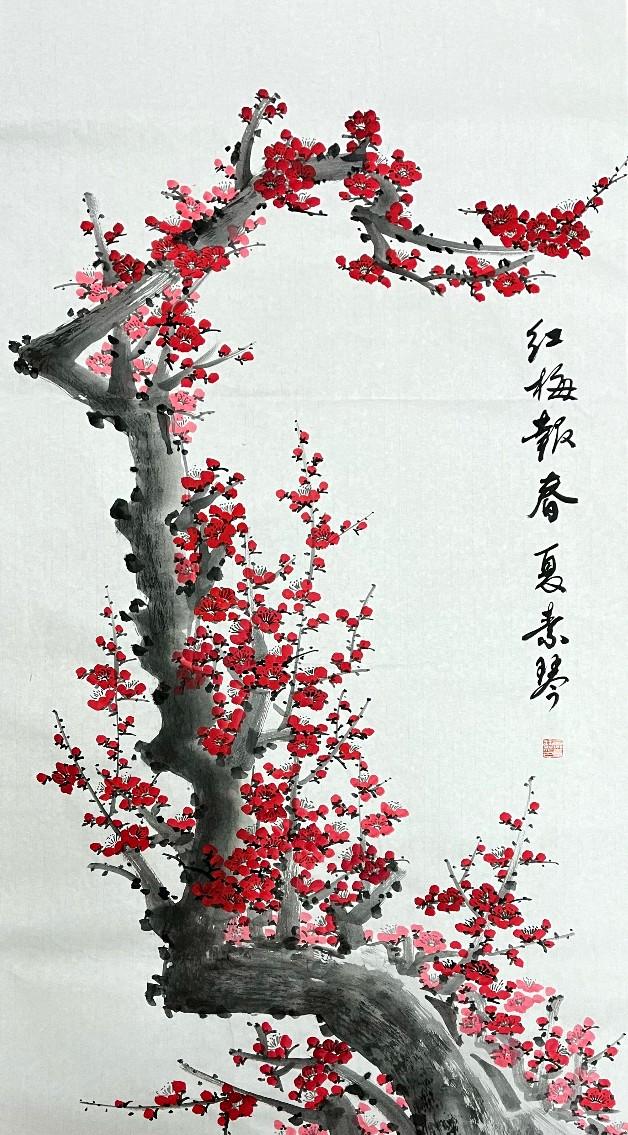 红梅報春 夏素琴